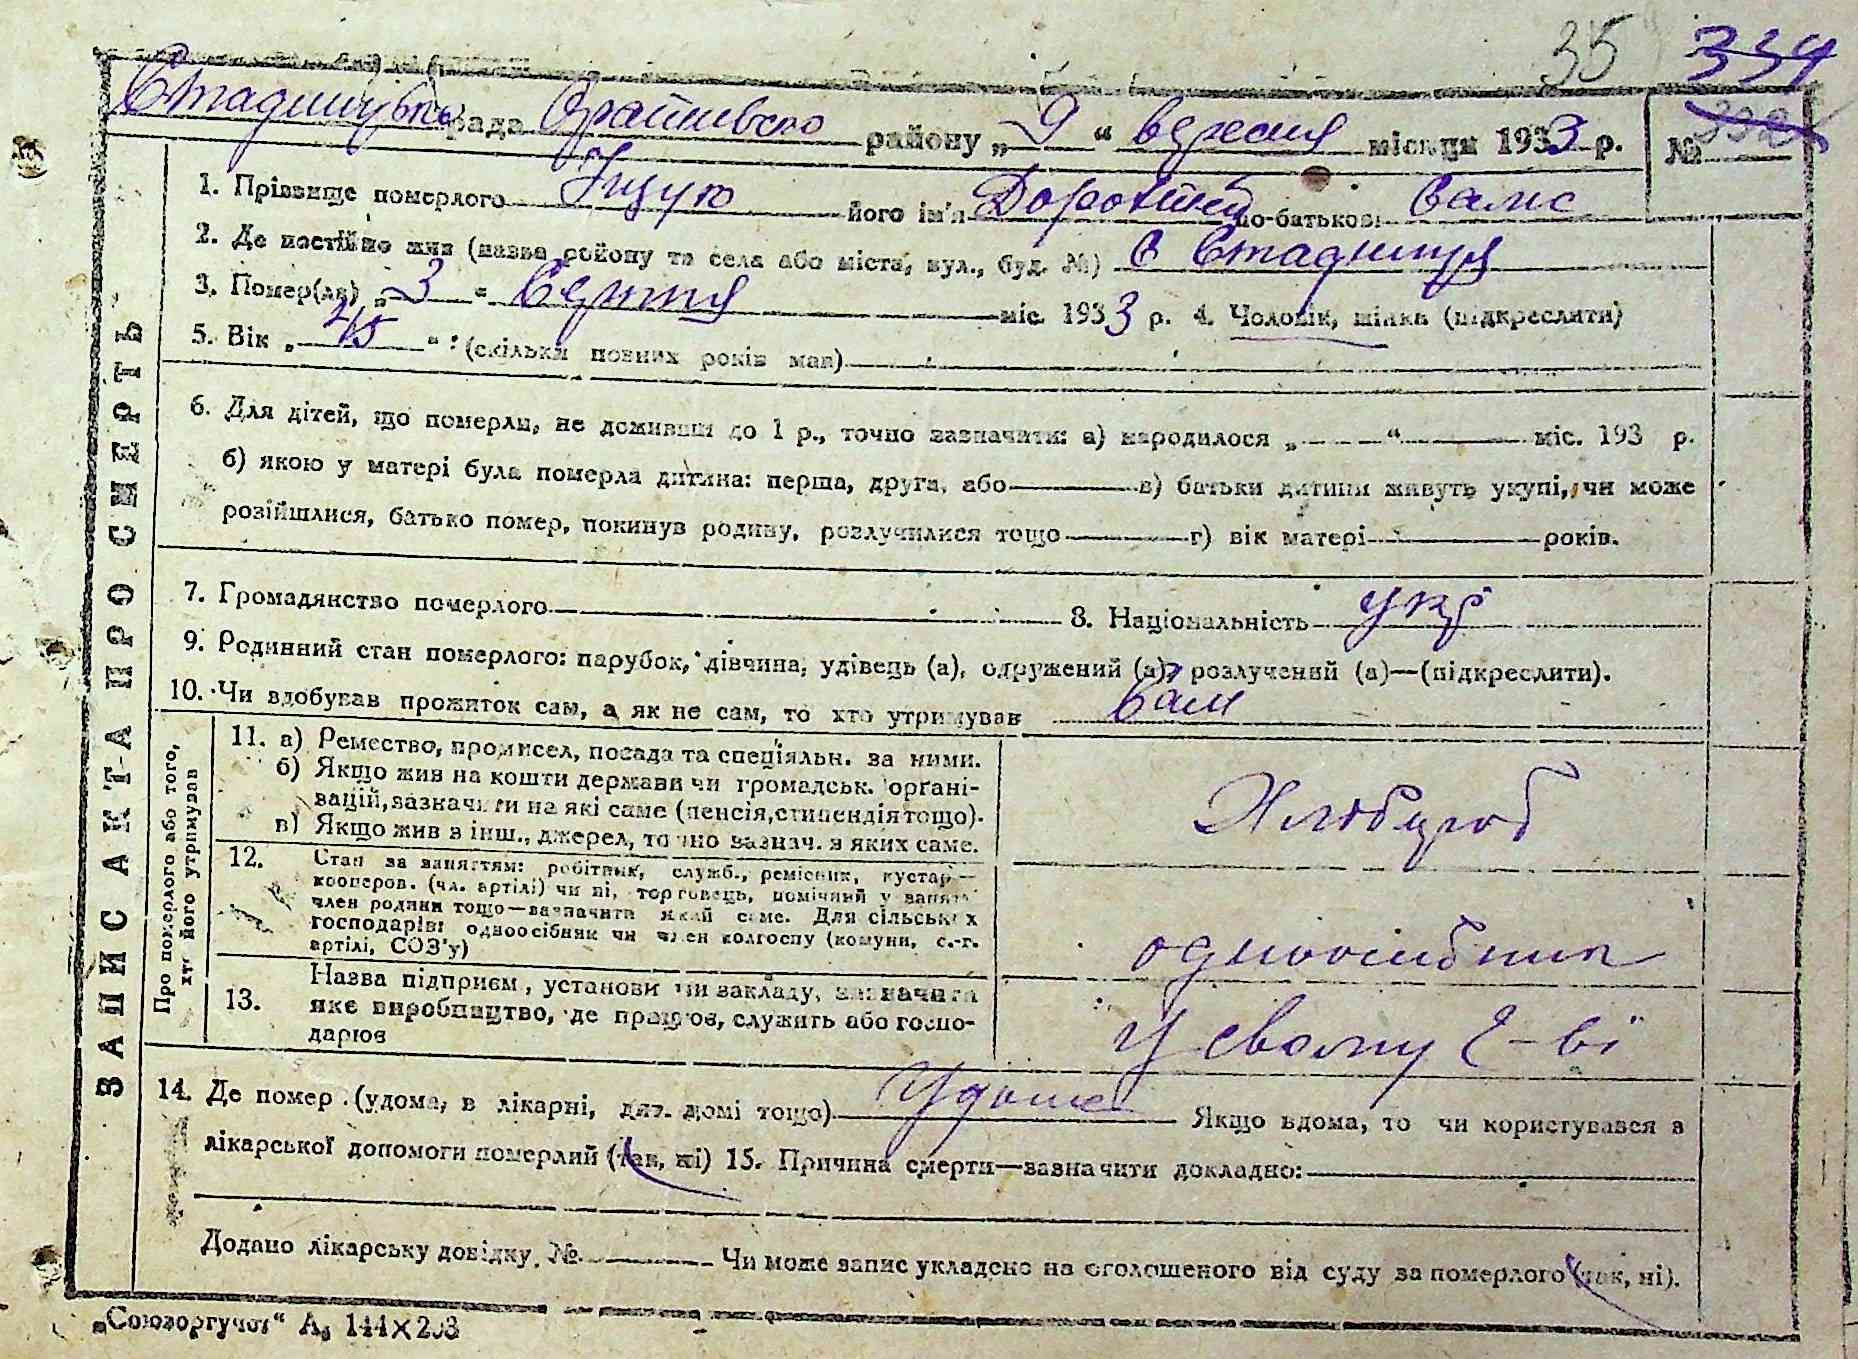 35 334
рада району „ 9 “ вересня місяця 1933 р. №
1. Прізвище померлого його ім'я Доротей по-батькові
2. Де постійно жив (назва району та села або міста, вул., буд. №) с Стадниця
3. Помер(ла) „ 3 “ міс. 1933 р. 4. Чоловік, жінка (підкреслити)
5. Вік „ 45 “ : (скільки повних років мав)
6. Для дітей, що померли, не доживши до 1 р., точно зазначити: а) народилося „ “ міс. 193 р.
б) якою у матері була померла дитина: перша, друга, або в) батьки дитини живуть укупі, чи може
розійшлися, батько помер, покинув родину, розлучилися тощо г) вік матері років.
7. Громадянство померлого 8. Національність укр
9. Родинний стан померлого: парубок, дівчина, удівець (а), одружений (а), розлучений (а)—(підкреслити).
10. Чи здобував прожиток сам, а як не сам, то хто утримував сам
ЗАПИС АКТА ПРО СМЕРТЬ
Про померлого або того, хто його утримував
11. а) Ремество, промисел, посада та спеціяльн. за ними.
б) Якщо жив на кошти держави чи громадськ. орґані-
зацій, зазначити на які саме (пенсія, стипендія тощо).
в) Якщо жив з інш., джерел, точно зазнач. з яких саме.
Хлібороб
12. Стан за заняттям: робітник, служб., ремісник, кустар—
кооперов. (чл. артілі) чи ні, торговець, помічний у занят.
член родини тощо—зазначити який саме. Для сільських
господарів: одноосібник чи член колгоспу (комуни, с.-г.
артілі, СОЗ'у)
одноосібник
13. Назва підприєм., установи чи закладу, зазначити
яке виробництво, де працюв, служить або госпо-
дарюв
У свому г-ві
14. Де помер (удома, в лікарні, дит. домі тощо) Удома Якщо вдома, то чи користувався з
лікарської допомоги померлий (так, ні) 15. Причина смерти—зазначити докладно:
Додано лікарську довідку № Чи може запис укладено на оголошеного від суду за померлого (так, ні).
„Союзоргучот“ А₅ 144×203